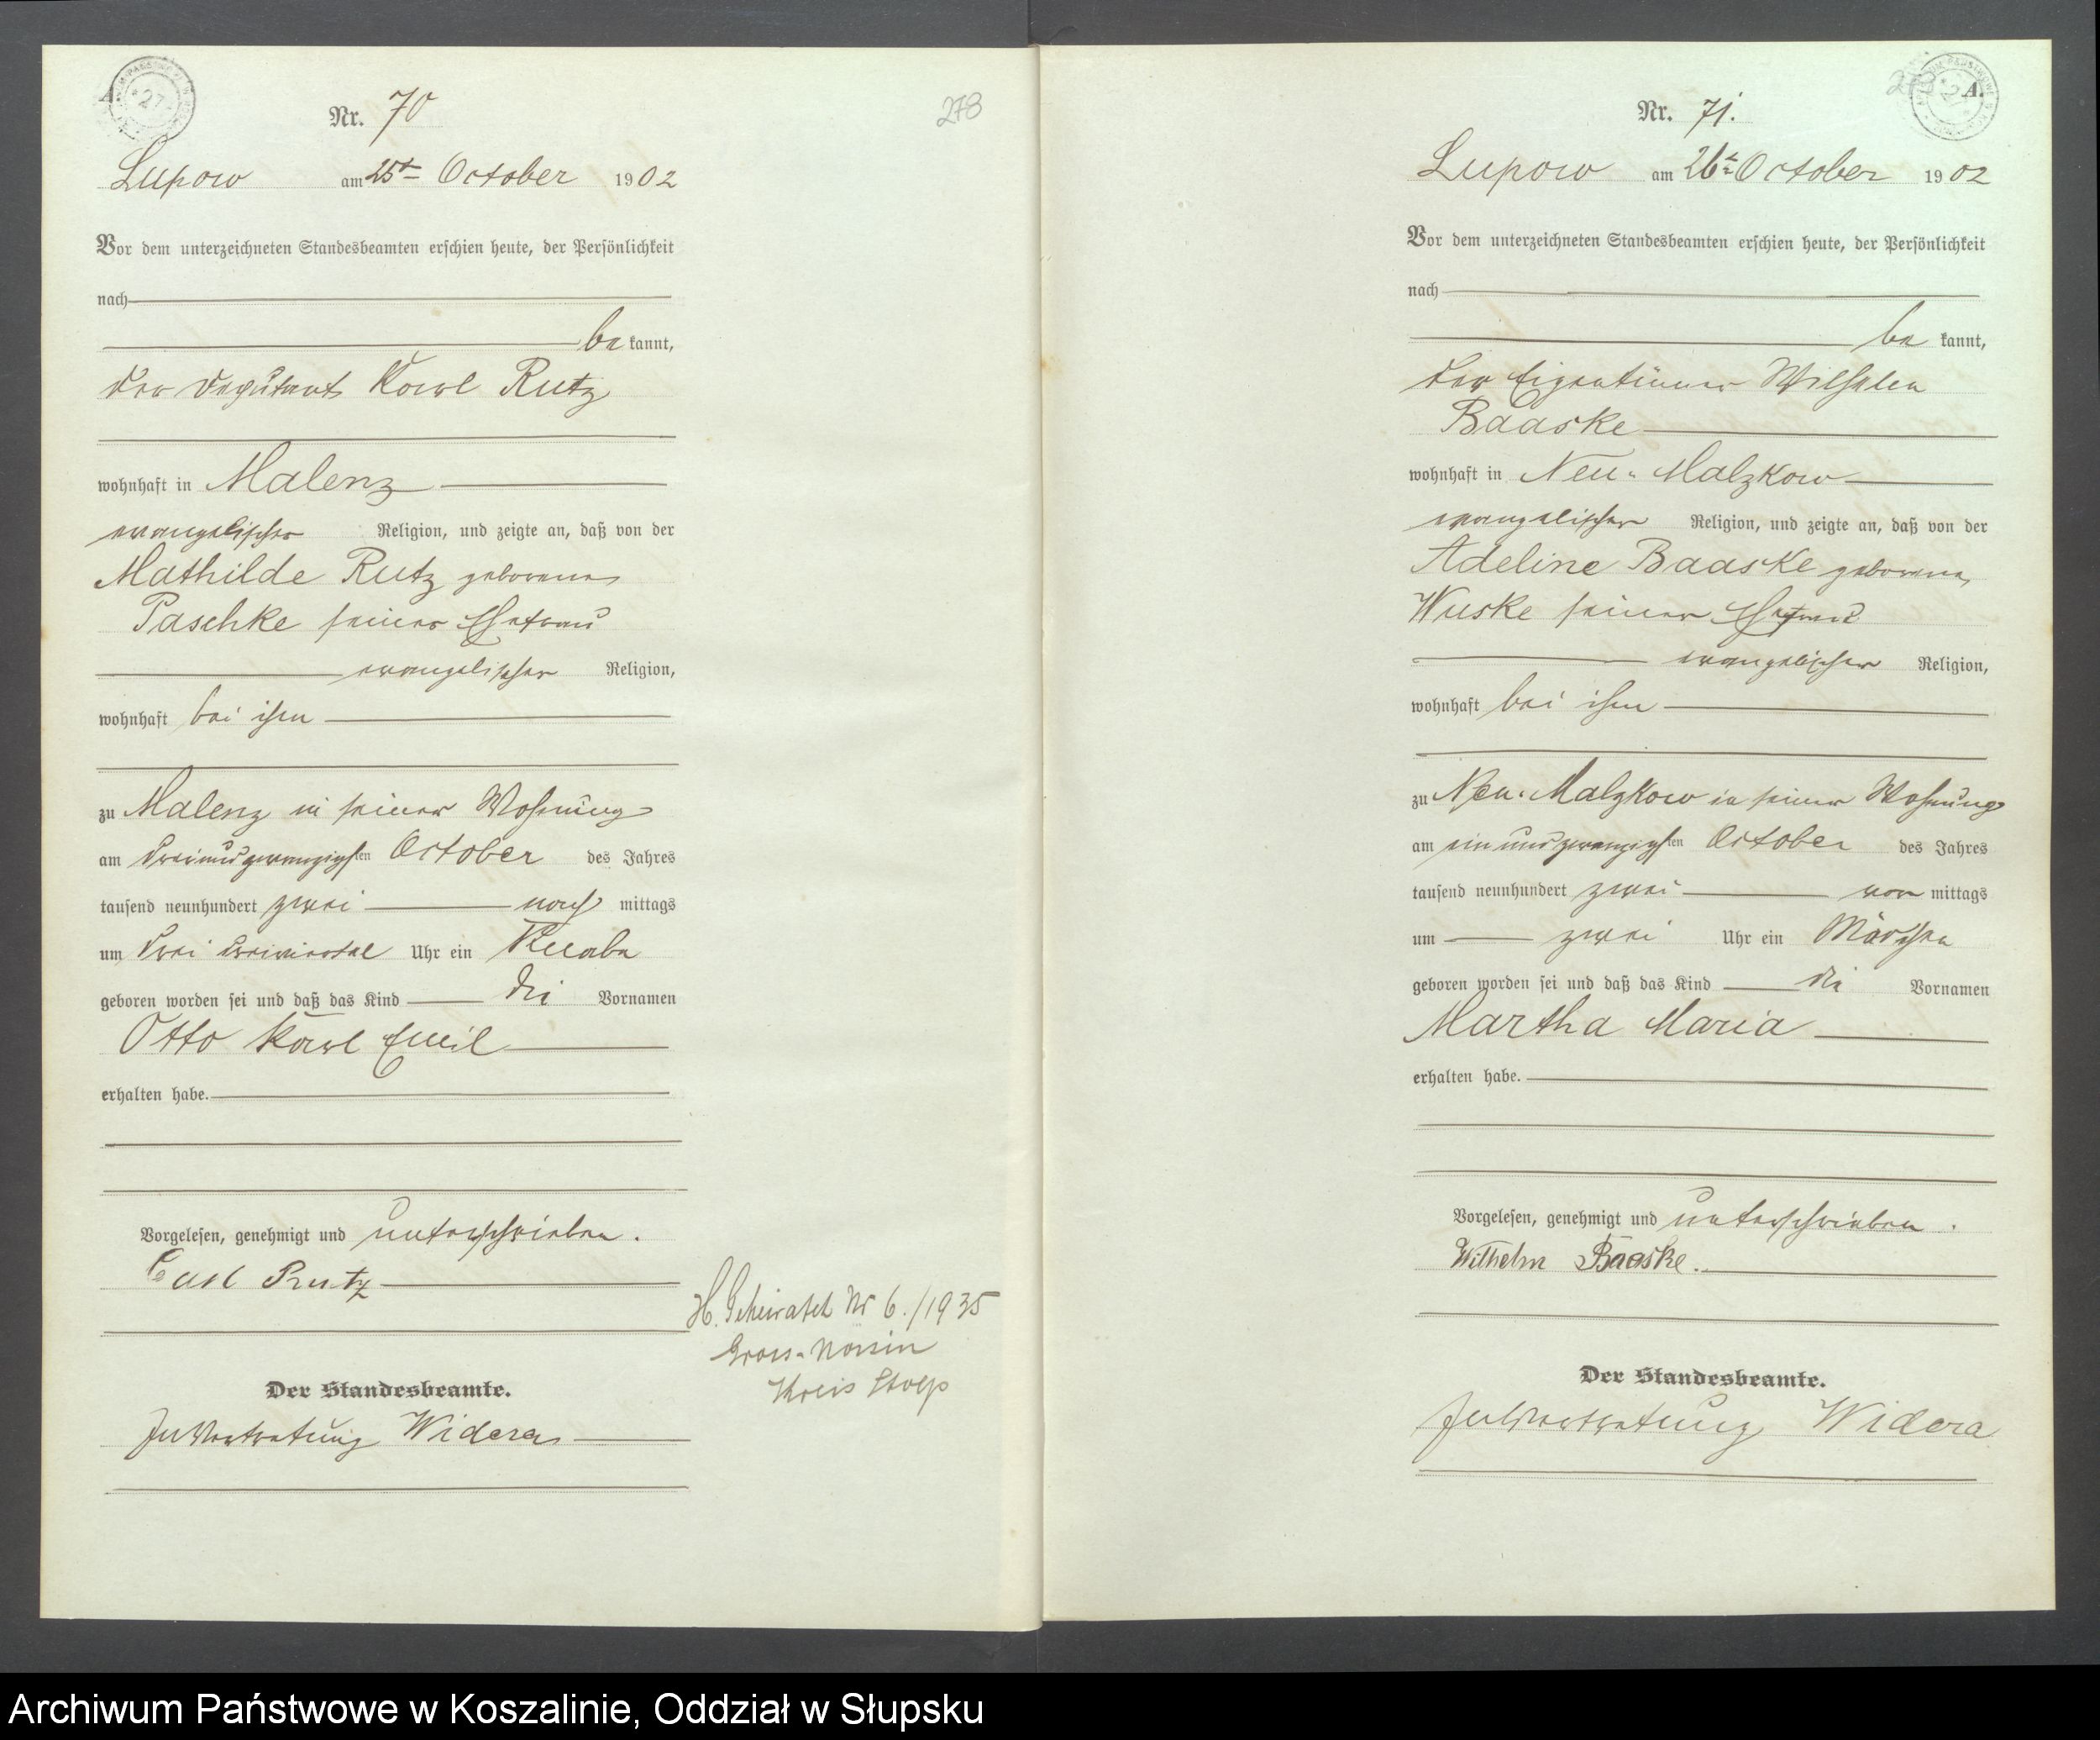 A.
Nr. 70
Lupow am 25t October 1902
Vor dem unterzeichneten Standesbeamten erschien heute, der Persönlichkeit
nach
be kannt,
der Deputant Karl Rutz
wohnhaft in Malenz
evangelischer Religion, und zeigte an, daß von der
Mathilde Rutz geborene
Paschke seiner Ehefrau
evangelischer Religion,
wohnhaft bei ihm
zu Malenz in seiner Wohnung
am dreiundzwanzigsten October des Jahres
tausend neunhundert zwei nach mittags
um drei dreiviertel Uhr ein Knabe
geboren worden sei und daß das Kind die Vornamen
Otto Karl Emil
erhalten habe.
Vorgelesen, genehmigt und unterschrieben.
Carl Rutz
Der Standesbeamte.
In Vertretung Widera
278
H. Geheiratet Nr 6./1935
Gross-Nossin
Kreis Stolp
A.
Nr. 71.
Lupow am 26t October 1902
Vor dem unterzeichneten Standesbeamten erschien heute, der Persönlichkeit
nach
be kannt,
der Eigentümer Wilhelm
Baaske
wohnhaft in Neu-Malzkow
evangelischer Religion, und zeigte an, daß von der
Adeline Baaske geborene
Wuske seiner Ehefrau
evangelischer Religion,
wohnhaft bei ihm
zu Neu-Malzkow in seiner Wohnung
am einundzwanzigsten October des Jahres
tausend neunhundert zwei vor mittags
um zwei Uhr ein Mädchen
geboren worden sei und daß das Kind die Vornamen
Martha Maria
erhalten habe.
Vorgelesen, genehmigt und unterschrieben.
Wilhelm Baaske.
Der Standesbeamte.
In Vertretung Widera
Archiwum Państwowe w Koszalinie, Oddział w Słupsku